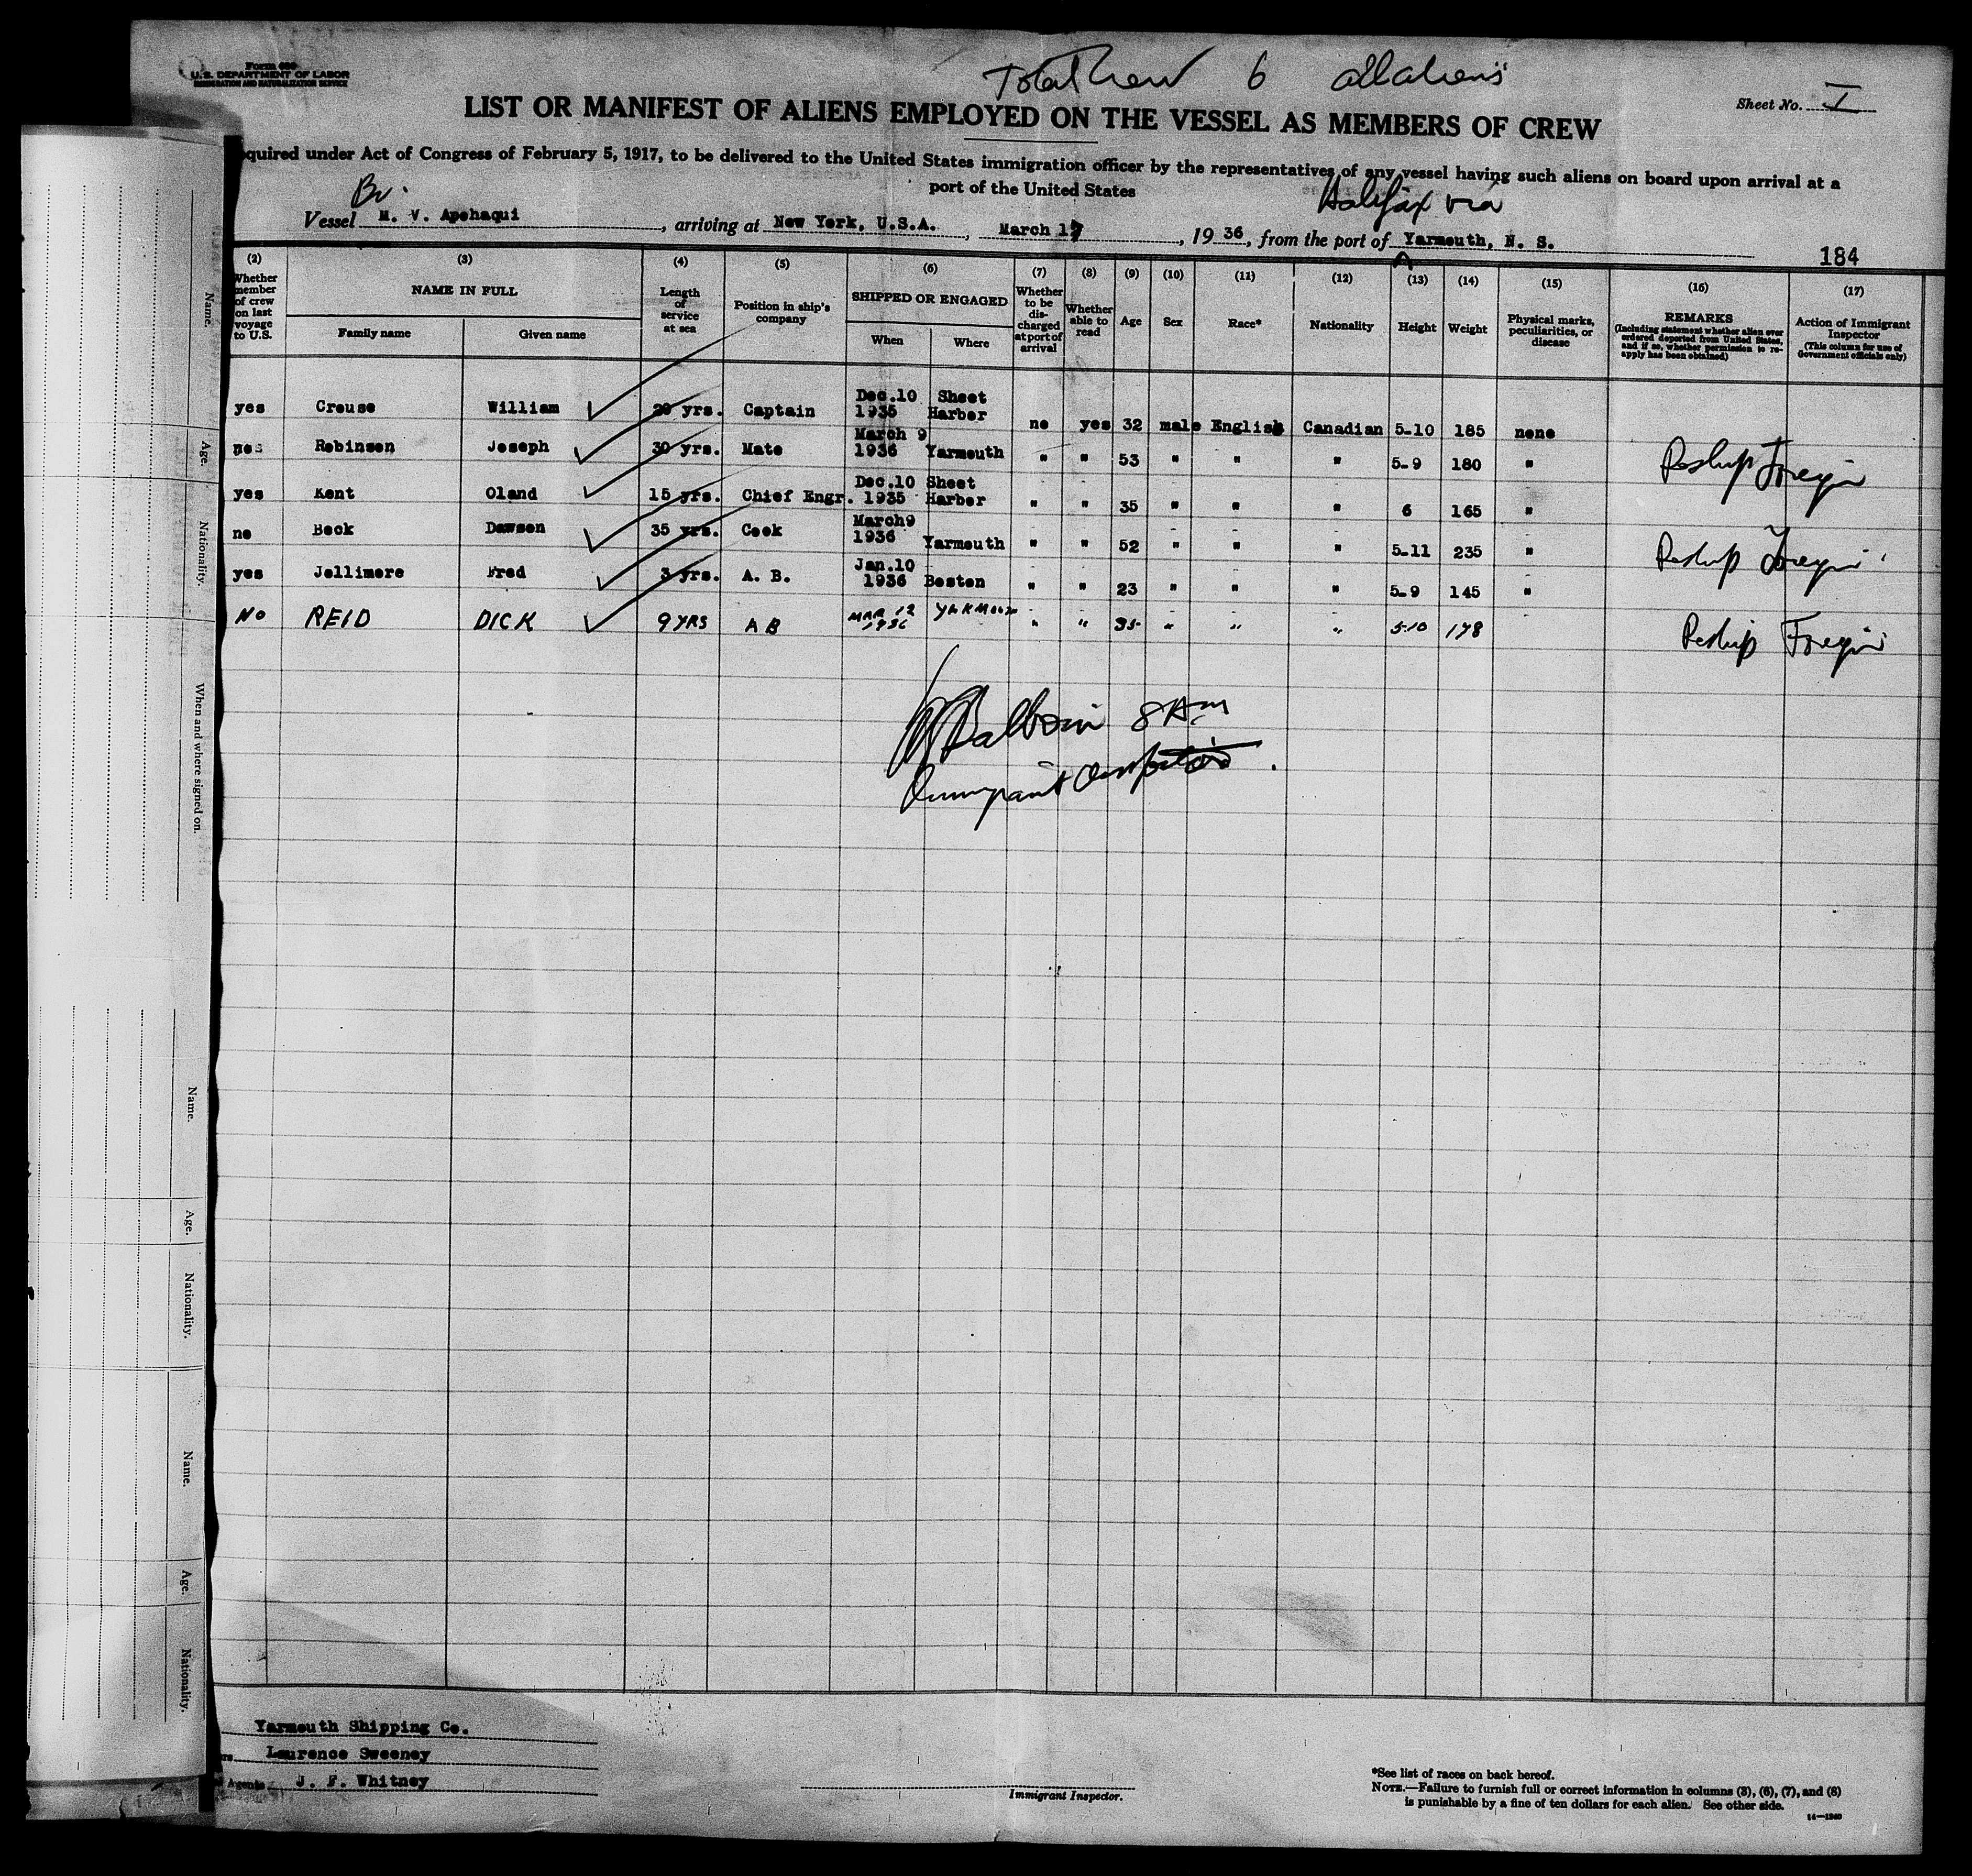 Total Crew 6 all aliens
Form 680
U.S. DEPARTMENT OF LABOR
IMMIGRATION AND NATURALIZATION SERVICE
Sheet No. I
LIST OR MANIFEST OF ALIENS EMPLOYED ON THE VESSEL AS MEMBERS OF CREW
quired under Act of Congress of February 5, 1917, to be delivered to the United States immigration officer by the representatives of any vessel having such aliens on board upon arrival at a
port of the United States
Br. Halifax via
Vessel M. V. Apohaqui, arriving at New York, U.S.A., March 17, 1936, from the port of Yarmouth, N. S.
184
(2) (3) (4) (5) (6) (7) (8) (9) (10) (11) (12) (13) (14) (15) (16) (17)
Whether member of crew on last voyage to U.S.
NAME IN FULL
Family name Given name
Length of service at sea
Position in ship's company
SHIPPED OR ENGAGED
When Where
Whether to be discharged at port of arrival
Whether able to read
Age
Sex
Race*
Nationality
Height
Weight
Physical marks, peculiarities, or disease
REMARKS
(Including statement whether alien ever ordered deported from United States, and if so, whether permission to re-apply has been obtained)
Action of Immigrant Inspector
(This column for use of Government officials only)
yes Crouse William 20 yrs. Captain Dec.10 1935 Sheet Harbor no yes 32 male English Canadian 5-10 185 none
Robinson Joseph 30 yrs. Mate March 9 1936 Yarmouth " " 53 " " " 5-9 180 " Reship Foreign
yes Kent Oland 15 yrs. Chief Engr. Dec.10 1935 Sheet Harbor " " 35 " " " 6 165 "
no Beck Dawson 35 yrs. Cook March9 1936 Yarmouth " " 52 " " " 5-11 235 " Reship Foreign
yes Jollimore Fred 3 yrs. A. B. Jan.10 1936 Boston " " 23 " " " 5-9 145 "
No REID DICK 9 YRS A B MAR 12 1936 " " 35 " " " 5-10 178 Reship Foreign
8 AM
Immigrant Inspector
Yarmouth Shipping Co.
Laurence Sweeney
Agents J. F. Whitney
Immigrant Inspector.
*See list of races on back hereof.
NOTE.—Failure to furnish full or correct information in columns (3), (6), (7), and (8)
is punishable by a fine of ten dollars for each alien. See other side.
Name.
Age.
Nationality.
When and where signed on.
Name.
Age.
Nationality.
Name.
Age.
Nationality.